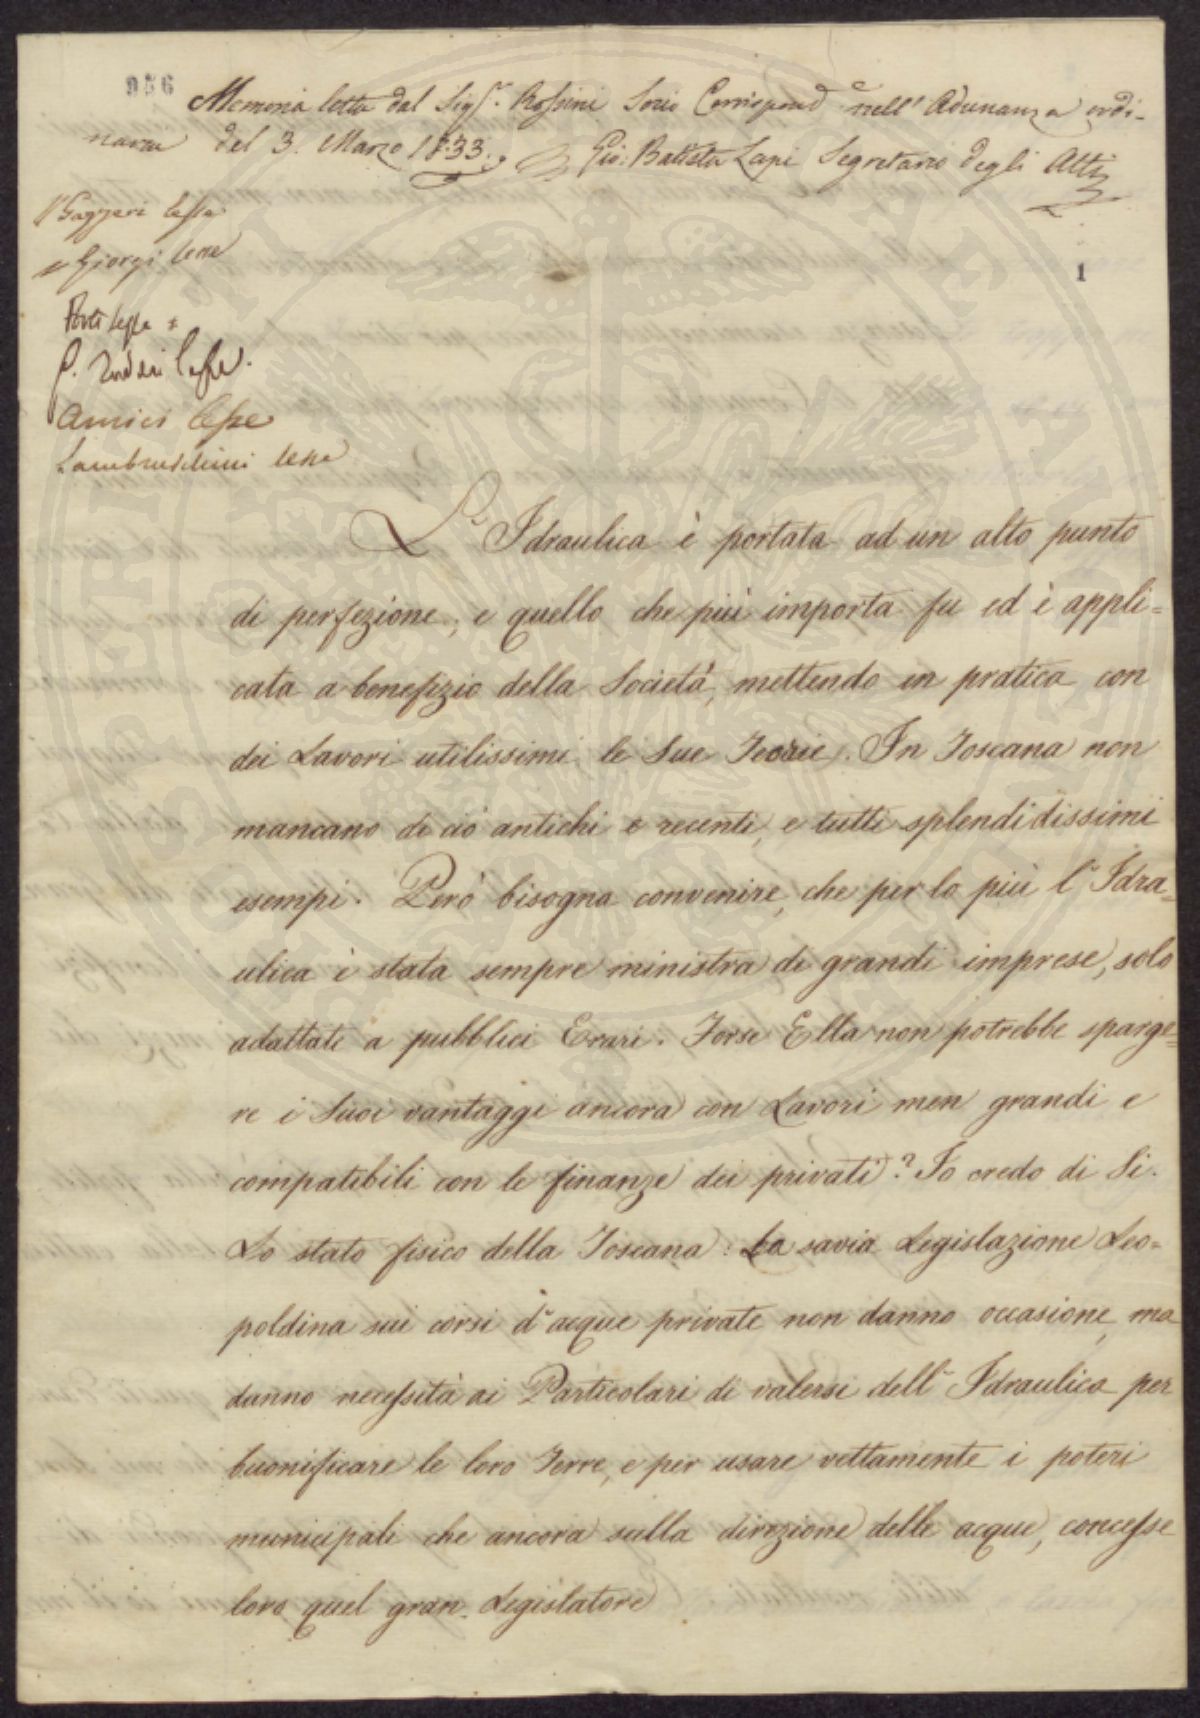 956
Memoria letta dal Sigr. Rossini Socio Corrispond.e nell'Adunanza ordi-
naria del 3. Marzo 1833.
Gio: Batista Lapi Segretario degli Atti
Gazzeri lesse
Giorgi lesse
1
lesse
P. lesse.
Amici lesse
Lambruschini lesse
L'Idraulica è portata ad un alto punto
di perfezione; e quello che più importa fu ed è appli=
cata a benefizio della Società, mettendo in pratica con
dei Lavori utilissimi le Sue Teorie. In Toscana non
mancano di ciò antichi e recenti, e tutti splendidissimi
esempi. Però bisogna convenire, che per lo più l'Idra=
ulica è stata sempre ministra di grandi imprese, solo
adattate a pubblici Erari. Forse Ella non potrebbe sparge=
re i Suoi vantaggi ancora con Lavori men grandi e
compatibili con le finanze dei privati? Io credo di Si.
Lo stato fisico della Toscana: La savia Legislazione Leo=
poldina sui corsi d'acque private non danno occasione, ma
danno necessità ai Particolari di valersi dell'Idraulica per
buonificare le loro Terre, e per usare rettamente i poteri
municipali che ancora sulla direzione delle acque, concesse
loro quel gran Legislatore